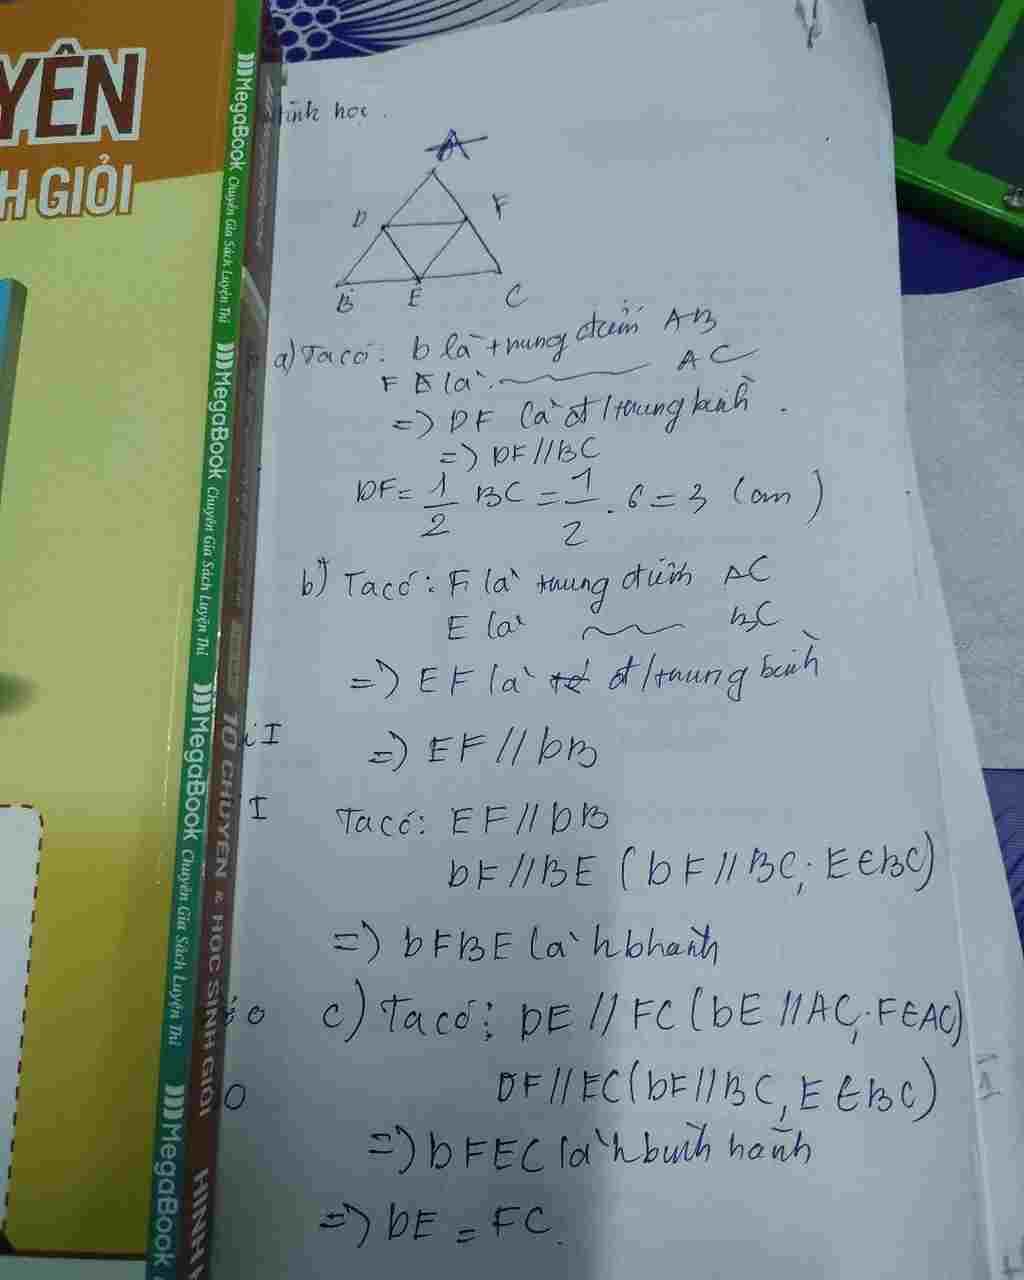 YÊN
H GIỎI
MegaBook Chuyên Gia Sách Luyện Thi
MegaBook Chuyên Gia Sách Luyện Thi
MegaBook Chuyên Gia Sách Luyện Thi
MegaBook
10 CHUYÊN & HỌC SINH GIỎI HÌNH
học.
A
D F
B E C
a) Ta có: D là trung điểm AB
F là ~ AC
=> DF là đ/trung bình.
=> DF//BC
DF = 1/2 BC = 1/2 . 6 = 3 (cm)
b) Ta có: F là trung điểm AC
E là ~ BC
=> EF là đ/trung bình
I
=> EF//DB
I
Ta có: EF//DB
DF//BE (DF//BC; E∈BC)
=> DFBE là hbhành
o
c) Ta có: DE//FC (DE//AC; F∈AC)
O
DF//EC (DF//BC, E∈BC)
=> DFEC là hbình hành
=> DE = FC.